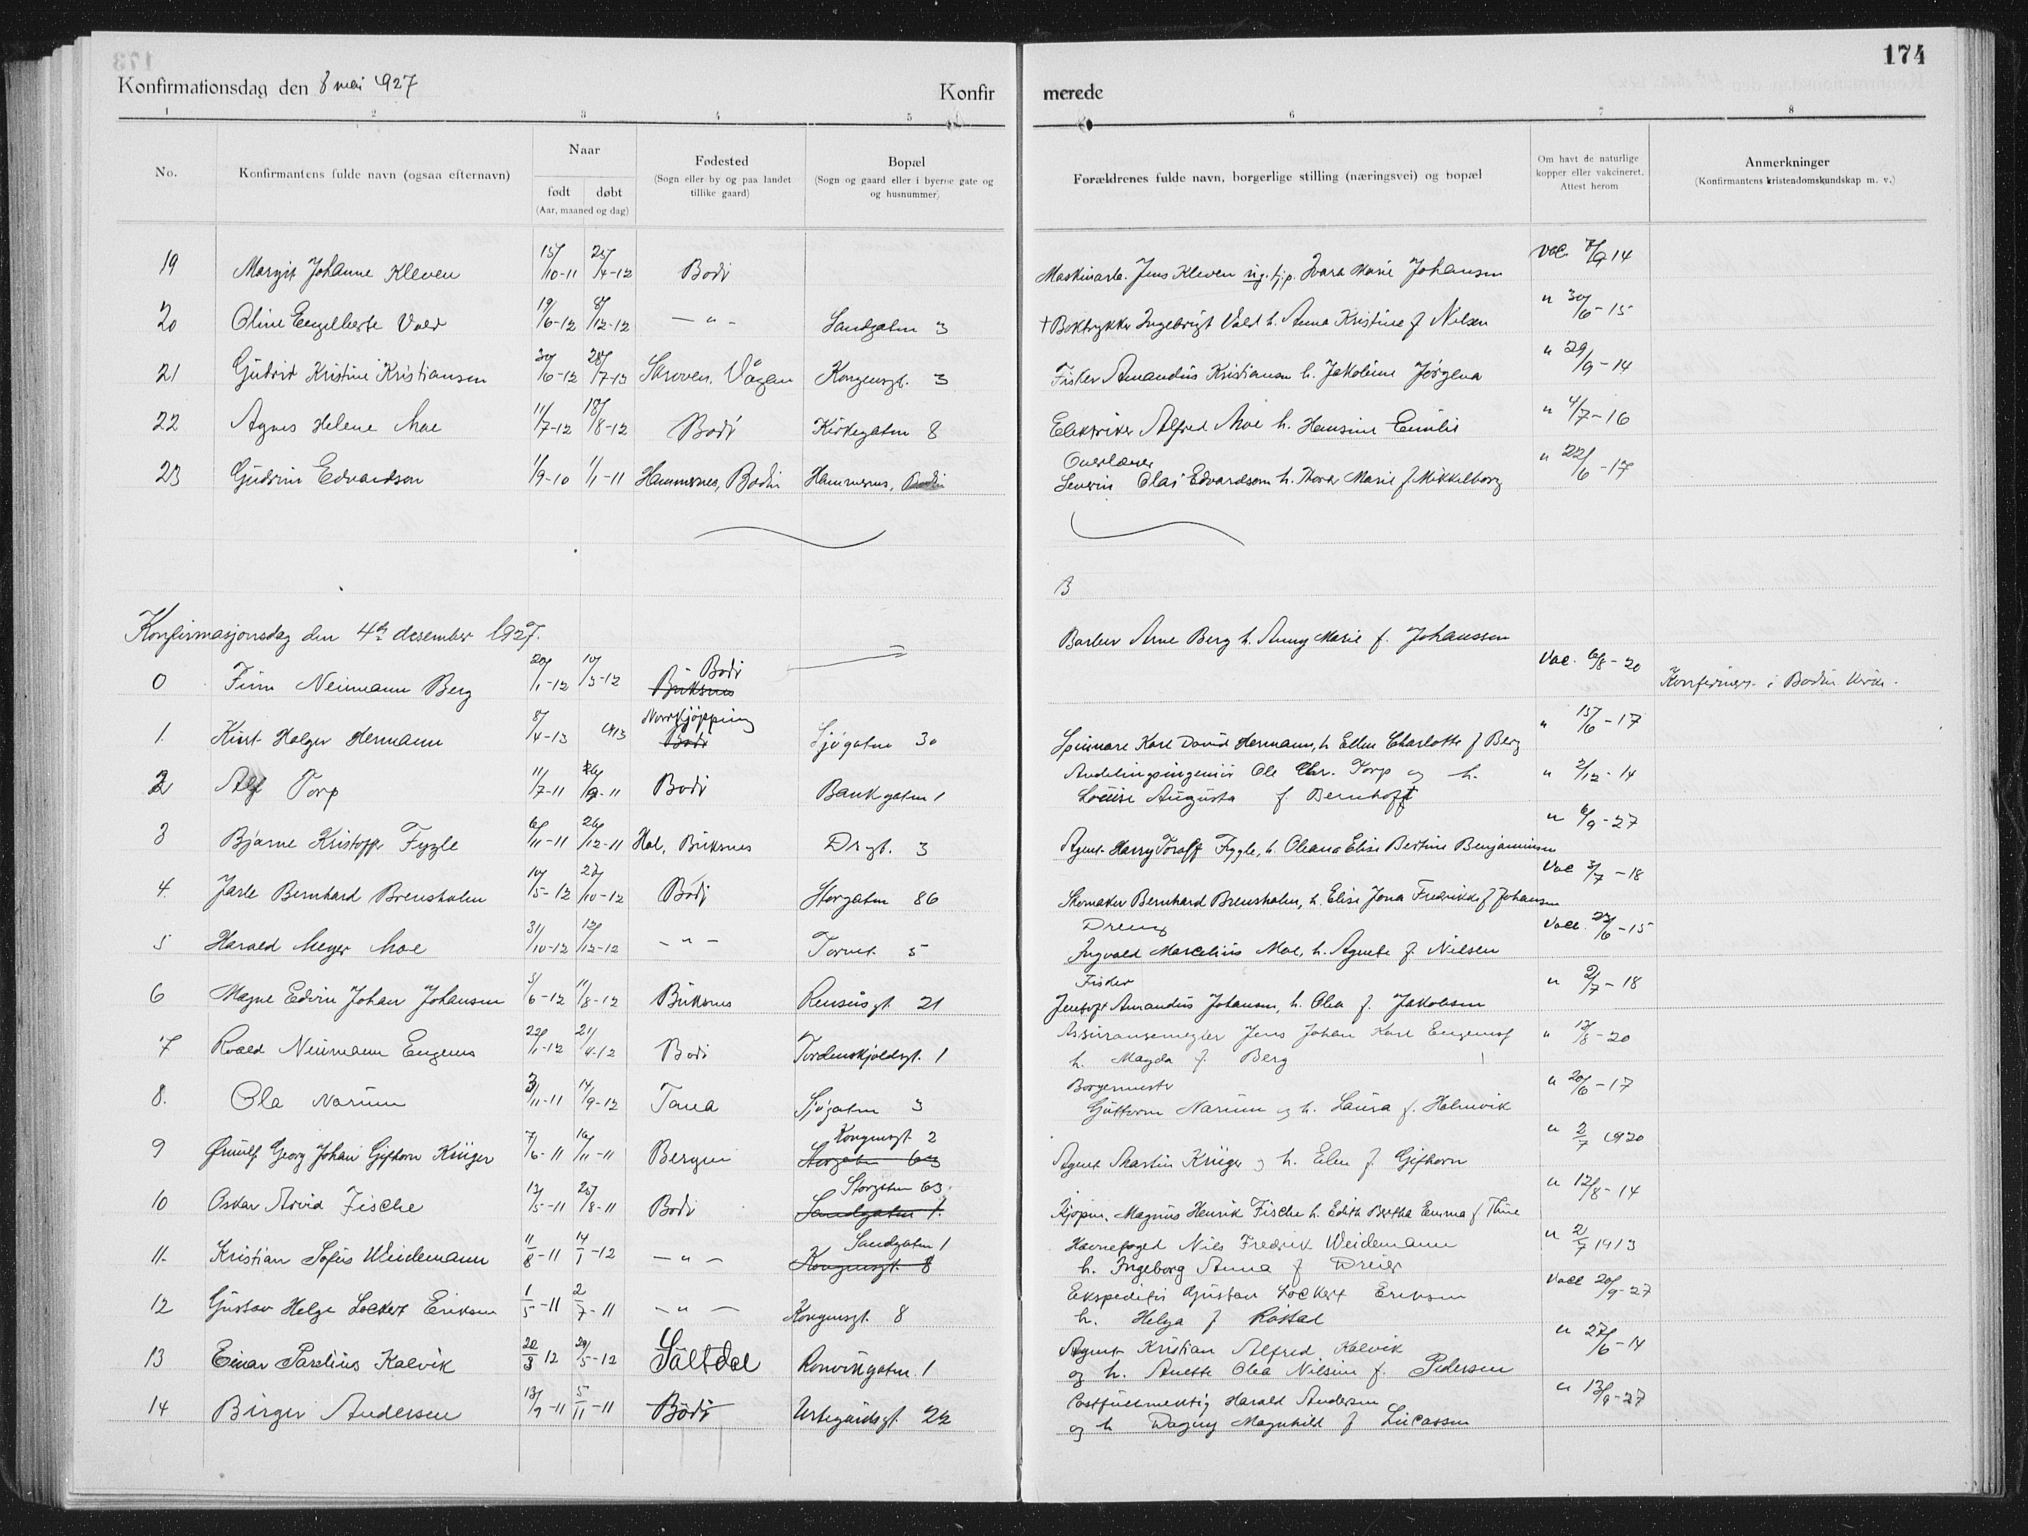 174
Konfirmationsdag den 8 mai 1927 Konfirmerede
1 2 3 4 5 6 7 8
No. Konfirmantens fulde navn (ogsaa efternavn) Naar født døbt (Aar, maaned og dag) Fødested (Sogn eller by og paa landet tillike gaard) Bopæl (Sogn og gaard eller i byerne gate og og husnummer) Forældrenes fulde navn, borgerlige stilling (næringsvei) og bopæl Om havt de naturlige kopper eller vakcineret. Attest herom Anmerkninger (Konfirmantens kristendomskundskap m. v.)
19 Margit Johanne Kleven 15/10-11 25/4-12 Bodø Maskinarb. Jens Kleven ug. tj.p. Marie Johansen Vac. 9/9 14
20 Oline Engelberte Vold 19/6-12 8/12-12 -"- Sandgaten 3 † Boktrykker Ingebrigt Vold h. Anna Kristine f Nilsen " 30/6-15
21 Gudrid Kristine Kristiansen 30/6-12 28/7-13 Skroven, Vågan Kongensgt. 3 Fisker Amandus Kristiansen h. Jakobine Jørgena " 29/9-14
22 Agnes Helene Moe 11/7-12 18/8-12 Bodø Kirkegaten 8 Elektriker Alfred Moe h. Hansine Emilie " 4/7-16
23 Gudrun Edvardsen 1/9-10 1/1-11 Hammernes, Bodin Hammernes, Bodin Overlærer Severin Olai Edvardsen h. Thora Marie f. Mikkelborg " 22/6-17
B
Konfirmasjonsdag den 4de desember 1927.
Barber Arne Berg h. Anny Marie f. Johanssen
0 Finn Neumann Berg 20/1-12 10/3-12 Bodø Buksnes Vac. 6/8-20 Konfirmert i Bodin kirke.
1. Kurt Holger Hermann 8/4-13 1913 Norrkjøpping Bodø Sjøgaten 30 Spinnare Karl David Hermann, h Ellen Charlotte f Berg " 15/6-17
2 Alf Torp 11/7-11 26/9-11 Bodø Bankgaten 1 Avdelingsingeniør Ole Chr. Torp og h. Louise Augusta f. Bernhoft " 2/12-14
3 Bjarne Kristoffer Fygle 6/11-11 26/12-11 Hol, Buksnes Dr.gt. 3 Agent Harry Toralf Fygle, h. Oleana Elise Bertine Benjaminsen " 6/9-27
4. Jarle Bernhard Brensholm 10/5-12 27/10-12 Bodø Storgaten 86 Skomaker Bernhard Brensholm, h. Elise Jona Fredrikke f Johansen Vac 3/7-18
5 Harald Meyer Moe 31/10-12 12/12-12 -"- Torvet 5 Dreng Ingvald Marcelius Moe, h. Agnete f. Nilsen Vacc. 22/6-15
6 Magne Edvin Johan Johansen 3/6-12 11/8-12 Buksnes Rensåsgt. 21 Fisker Jentoft Amandus Johansen, h. Olea f. Jakobsen " 2/7-18
7 Roald Neumann Eugenes 22/1-12 21/4-12 Bodø Tordenskjoldsgt. 1 Assuransemegler Jens Johan Karl h. Magda f. Berg " 12/8-20
8. Ola Narum 3/11-11 14/9-12 Tana Sjøgaten 3 Borgermestr Guttorm Narum og h. Laura f. Holmvik " 20/6-17
9 Ørnulf Georg Johan Gifhorn Krüger 7/6-11 16/11-11 Bergen Kongensgt. 2 Storgaten 63 Agent Martin Krüger og h. Elen f. Gifhorn " 2/7 1920
10 Oskar Arvid Fische 13/5-11 20/8-11 Bodø Storgaten 63. Sandgaten 1. Kjøpm. Magnus Henrik Fische h. Edith Bertha Emma f Thine " 12/8-14
11. Kristian Sofus Weidemann 11/8-11 14/1-12 -"- Sandgaten 1 Kongensgt. 8 Havnefoged Nils Fredrik Weidemann h. Ingeborg Anna f Dreier " 2/7 1913
12 Gustav Helge Lockert Eriksen 1/5-11 2/7-11 -"- Kongensgt. 8 Ekspeditør Gustav Lockert Eriksen h. Helga f Røstad Vacc 20/9-27
13 Einar Paselius Kalvik 20/3 12 29/5-12 Saltdal Rønvikgaten. 1 Agent Kristian Alfred Kalvik og h. Anette Olea Nilsine f. Pedersen " 27/6-14
14 Birger Andersen 13/9-11 5/11-11 Bodø Urtegårdsgt. 22 Postfullmektig Harald Andersen og h Dagny Magnhild f Lucassen " 13/9-27